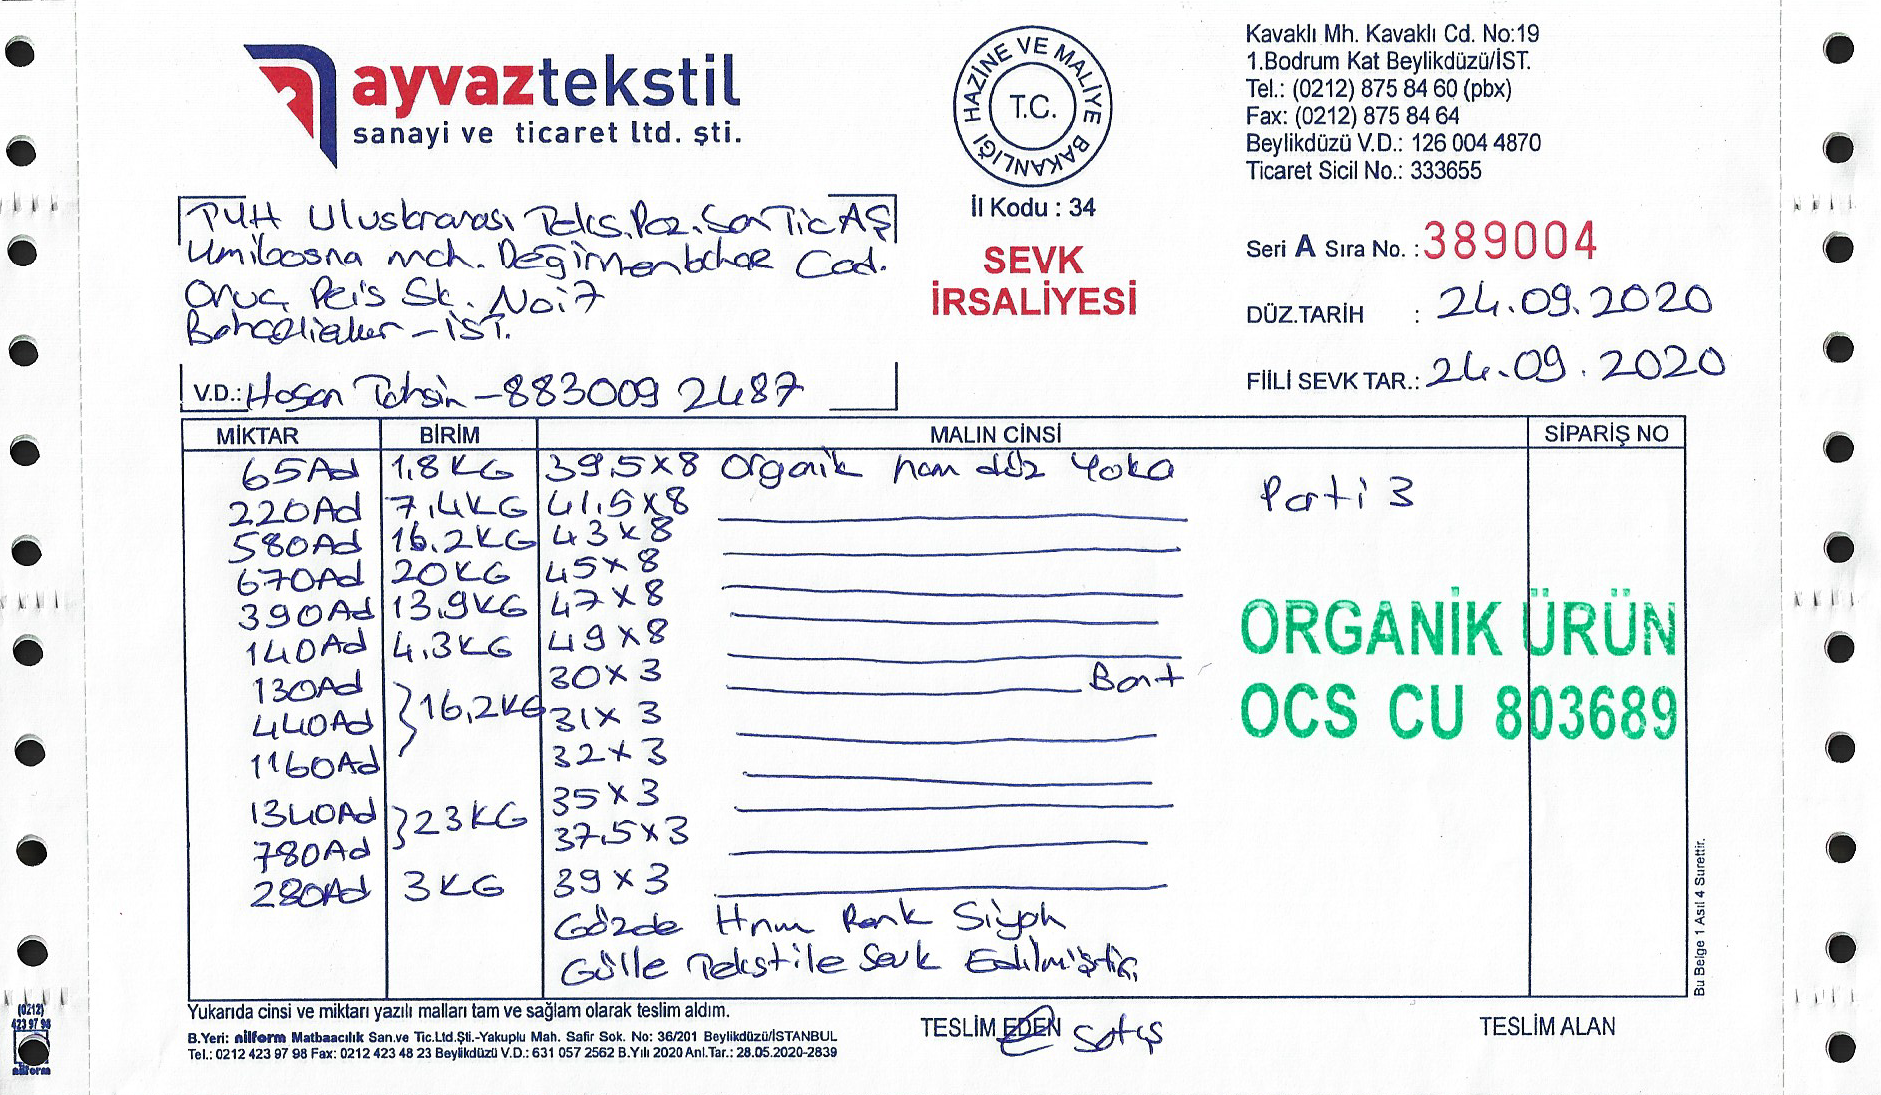 ayvaztekstil
sanayi ve ticaret ltd. şti.
HAZİNE VE MALİYE BAKANLIĞI
T.C.
İl Kodu : 34
SEVK
İRSALİYESİ
Kavaklı Mh. Kavaklı Cd. No:19
1.Bodrum Kat Beylikdüzü/İST.
Tel.: (0212) 875 84 60 (pbx)
Fax: (0212) 875 84 64
Beylikdüzü V.D.: 126 004 4870
Ticaret Sicil No.: 333655
Seri A Sıra No. : 389004
DÜZ.TARİH : 24.09.2020
FİİLİ SEVK TAR.: 24.09.2020
Uluslararası Teks. Paz. San Tic AŞ
Cad.
Oruç Reis Sk. No:7
Bahçelievler - İST.
V.D.: Hasan Tahsin - 883009 2487
MİKTAR BİRİM MALIN CİNSİ SİPARİŞ NO
65Ad 1,8KG 39,5x8 Organik ham düz Yaka Parti 3
220Ad 7,4KG 41,5x8
580Ad 16,2KG 43x8
670Ad 20KG 45x8
390Ad 13,9KG 47x8
140Ad 4,3KG 49x8
130Ad 30x3 Bant
440Ad 16,2KG 31x3
1160Ad 32x3
1340Ad 23KG 35x3
780Ad 37,5x3
280Ad 3KG 39x3
Gözde Hnm Renk Siyah
Gülle Tekstile Sevk Edilmiştir.
ORGANİK ÜRÜN
OCS CU 803689
Bu Belge 1 Asıl 4 Surettir.
Yukarıda cinsi ve miktarı yazılı malları tam ve sağlam olarak teslim aldım.
B.Yeri: nilform Matbaacılık San.ve Tic.Ltd.Şti.-Yakuplu Mah. Safir Sok. No: 36/201 Beylikdüzü/İSTANBUL
Tel.: 0212 423 97 98 Fax: 0212 423 48 23 Beylikdüzü V.D.: 631 057 2562 B.Yılı 2020 Anl.Tar.: 28.05.2020-2839
TESLİM EDEN Satış
TESLİM ALAN
(0212)
423 97 98
nilform